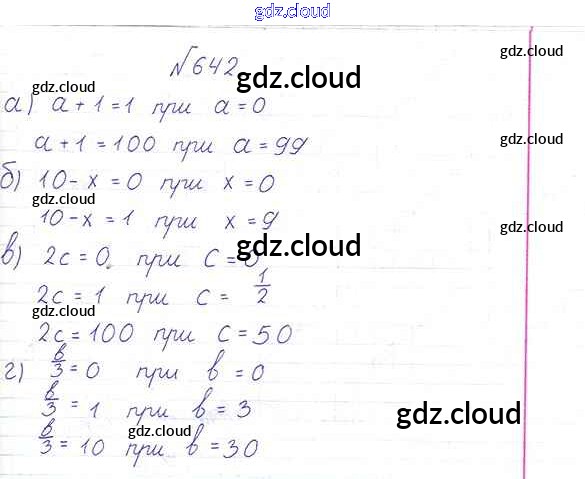 gdz.cloud
gdz.cloud
№642
gdz.cloud
gdz.cloud
а) a + 1 = 1 при a = 0
a + 1 = 100 при a = 99
gdz.cloud
б) 10 - x = 0 при x = 0
gdz.cloud
10 - x = 1 при x = 9
gdz.cloud
gdz.cloud
в) 2c = 0 при c = 0
2c = 1 при c = 1/2
gdz.cloud
gdz.cloud
2c = 100 при c = 50
г) в/3 = 0 при в = 0
в/3 = 1 при в = 3
gdz.cloud
gdz.cloud
в/3 = 10 при в = 30
gdz.cloud